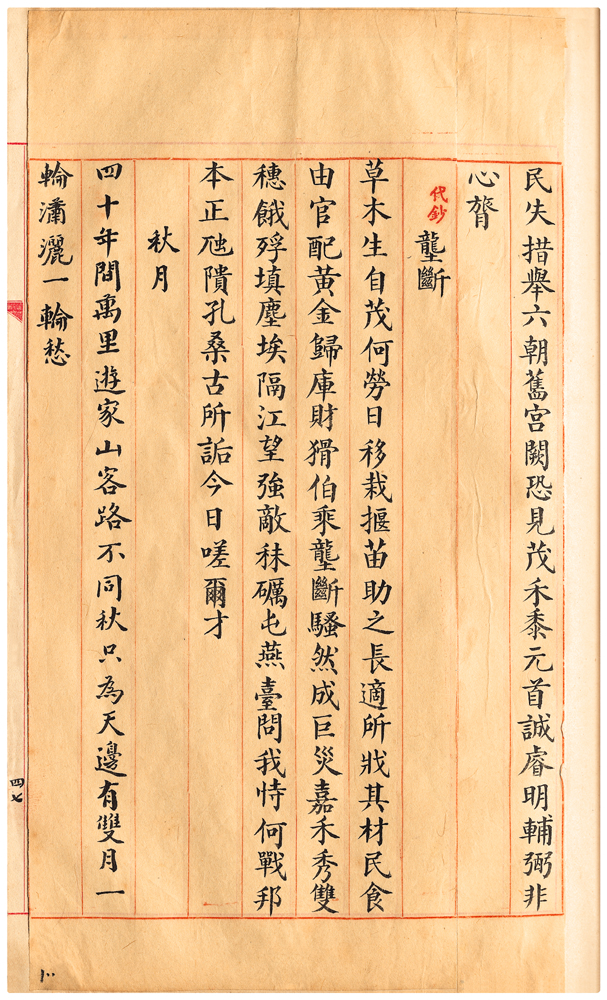 民失措舉六朝舊宮闕恐見茂禾黍元首誠睿明輔弼非
心膂
代鈔
壟斷
草木生自茂何勞日移栽揠苗助之長適所戕其材民食
由官配黃金歸庫財猾伯乘壟斷騷然成巨災嘉禾秀雙
穗餓殍填塵埃隔江望強敵秣礪屯燕臺問我恃何戰邦
本正虺隤孔桑古所詬今日嗟爾才
秋月
四十年間萬里遊家山客路不同秋只為天邊有雙月一
輪瀟灑一輪愁
四七